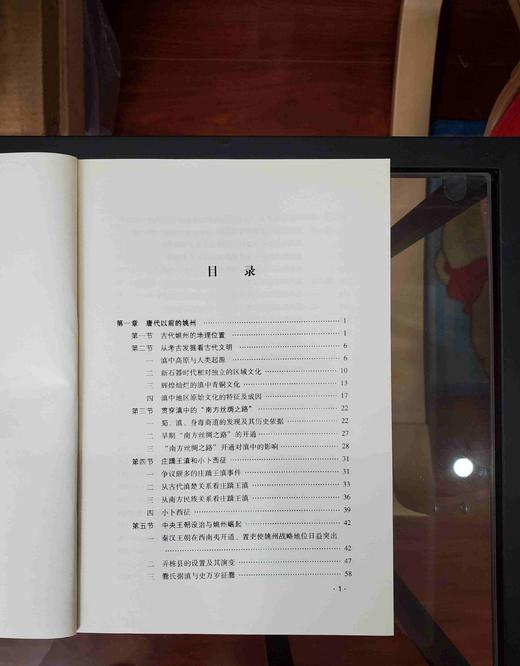 目 录
第一章 唐代以前的姚州 ………… 1
第一节 古代姚州的地理位置 ………… 1
第二节 从考古发掘看古代文明 ………… 6
一 滇中高原与人类起源 ………… 6
二 新石器时代相对独立的区域文化 ………… 10
三 辉煌灿烂的滇中青铜文化 ………… 13
四 滇中地区原始文化的特征及成因 ………… 17
第三节 贯穿滇中的“南方丝绸之路” ………… 22
一 蜀、滇、身毒商道的发现及其历史依据 ………… 22
二 早期“南方丝绸之路”的开通 ………… 27
三 “南方丝绸之路”开通对滇中的影响 ………… 28
第四节 庄蹻王滇和小卜西征 ………… 31
一 争议颇多的庄蹻王滇事件 ………… 31
二 从古代滇楚关系看庄蹻王滇 ………… 33
三 从南方民族关系看庄蹻王滇 ………… 36
四 小卜西征 ………… 39
第五节 中央王朝设治与姚州崛起 ………… 42
一 秦汉王朝在西南夷开道、置吏使姚州战略地位日益突出
………… 42
二 弄栋县的设置及其演变 ………… 47
三 爨氏据滇与史万岁征爨 ………… 58
· 1 ·